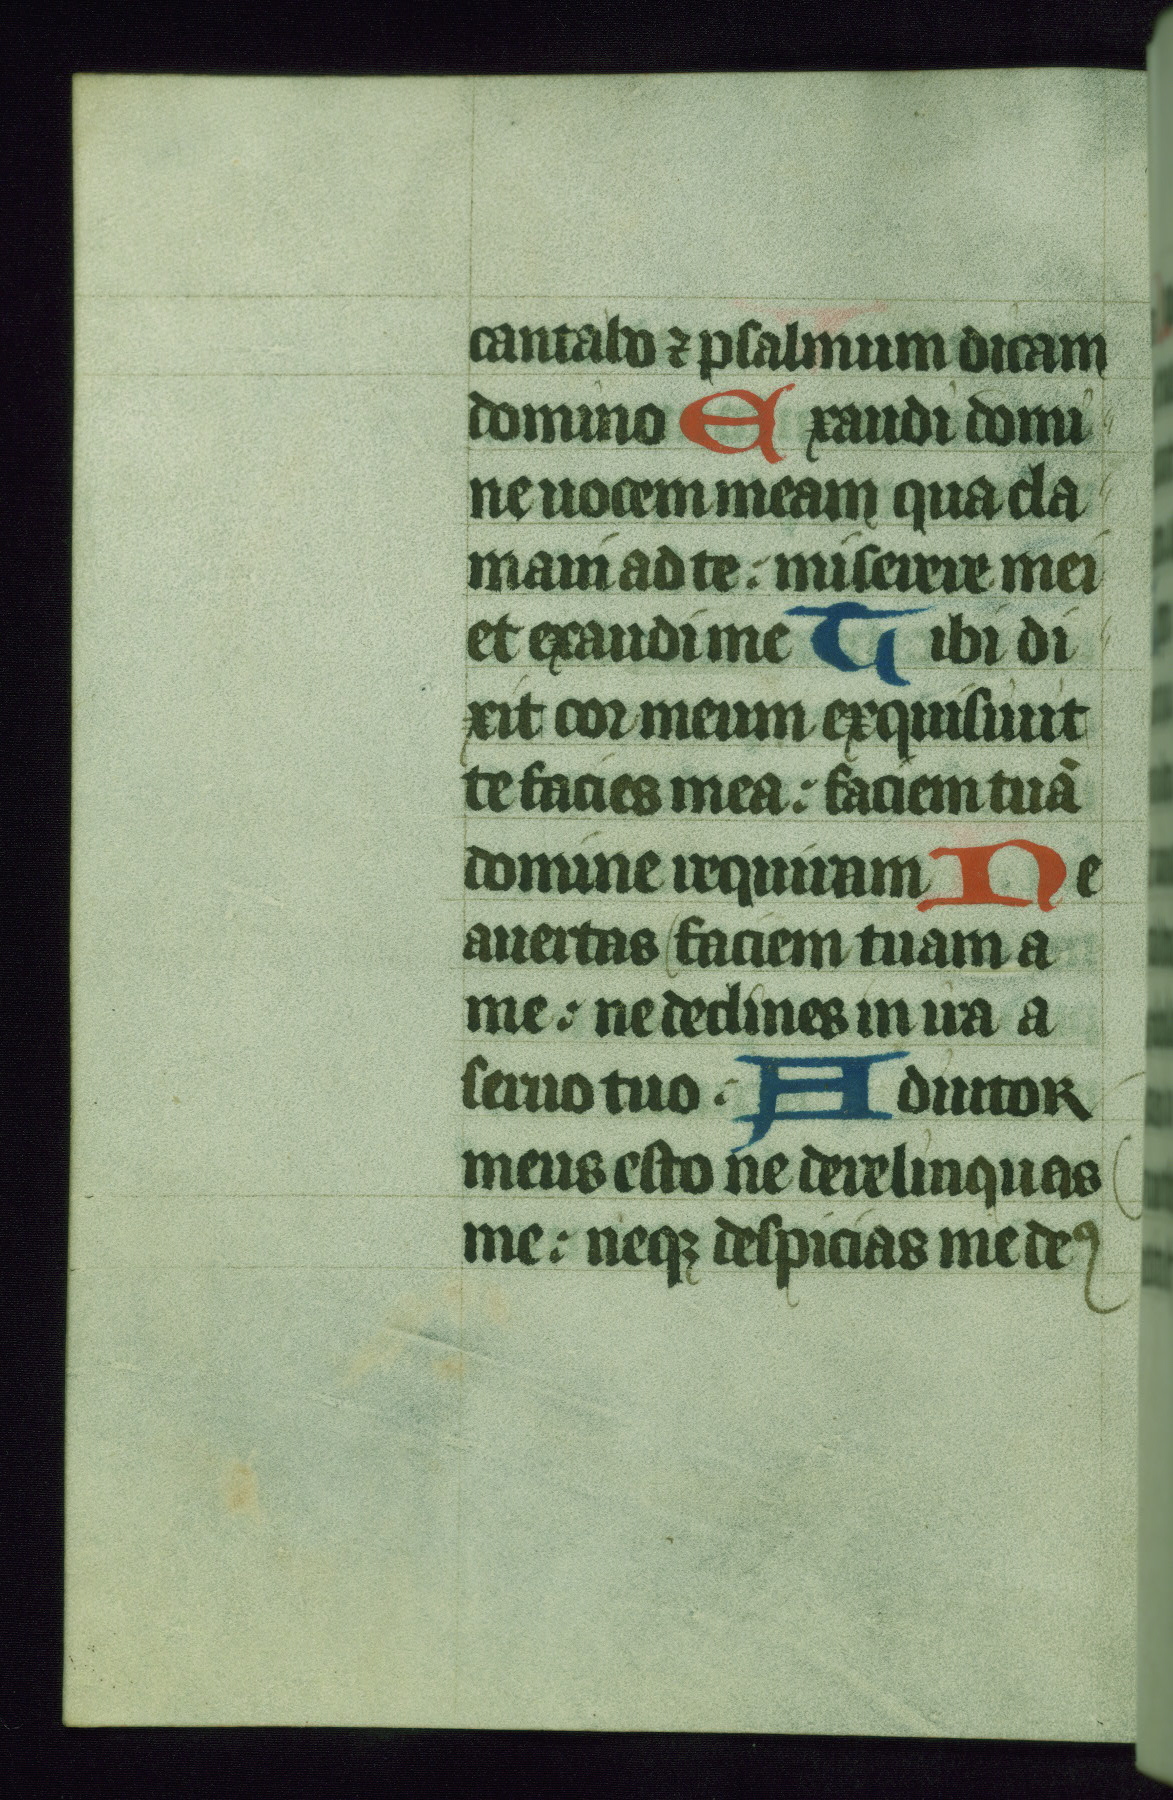 cantabo ⁊ psalmum dicam
domino Exaudi domi
ne uocem meam qua cla
maui ad te : miserere mei
et exaudi me Tibi di
xit cor meum exquisiuit
te facies mea : faciem tuā
domine requiram Ne
auertas faciem tuam a
me : ne declines in ira a
seruo tuo : Adiutor
meus esto ne derelinquas
me : neqꝫ despicias me deꝰ